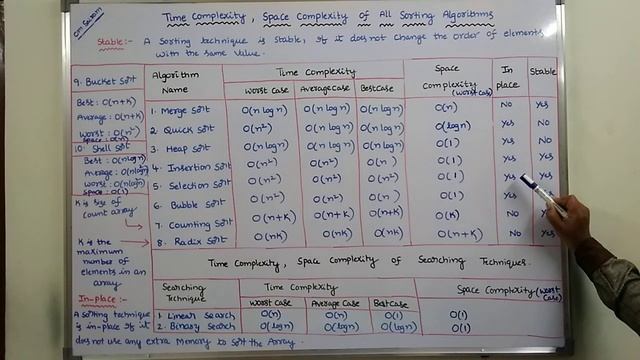 Om Sairam
Time Complexity, Space Complexity of All Sorting Algorithms
Stable:- A Sorting technique is stable, if it does not change the order of elements
with the same value.
9. Bucket Sort
Best: O(n+K)
Average: O(n+K)
Worst: O(n²)
Space: O(n)
10. Shell Sort
Best: O(n logn)
Average: O(nlogn²)
Worst: O(nlogn²)
Space: O(1)
K is size of
count array
K is the
maximum
number of
elements in an
array
In-place:-
A Sorting technique
is in-place if it
does not use any extra Memory to Sort the Array.
Algorithm Name | Time Complexity | Space Complexity (worst case) | In place | Stable
Worst Case | Average Case | Best Case
1. Merge Sort O(n log n) O(n log n) O(n log n) O(n) No Yes
2. Quick Sort O(n²) O(n log n) O(n log n) O(log n) Yes No
3. Heap Sort O(n log n) O(n log n) O(n log n) O(1) Yes No
4. Insertion Sort O(n²) O(n²) O(n) O(1) Yes Yes
5. Selection Sort O(n²) O(n²) O(n²) O(1) Yes
6. Bubble Sort O(n²) O(n²) O(n) O(1) Yes
7. Counting Sort O(n+K) O(n+K) O(n+K) O(K) No
8. Radix Sort O(nK) O(nK) O(nK) O(n+K) No Yes
Time Complexity, Space Complexity of Searching Techniques.
Searching Technique | Time Complexity | Space Complexity (worst case)
Worst Case | Average Case | Best Case
1. Linear Search O(n) O(n) O(1) O(1)
2. Binary Search O(logn) O(logn) O(logn) O(1)